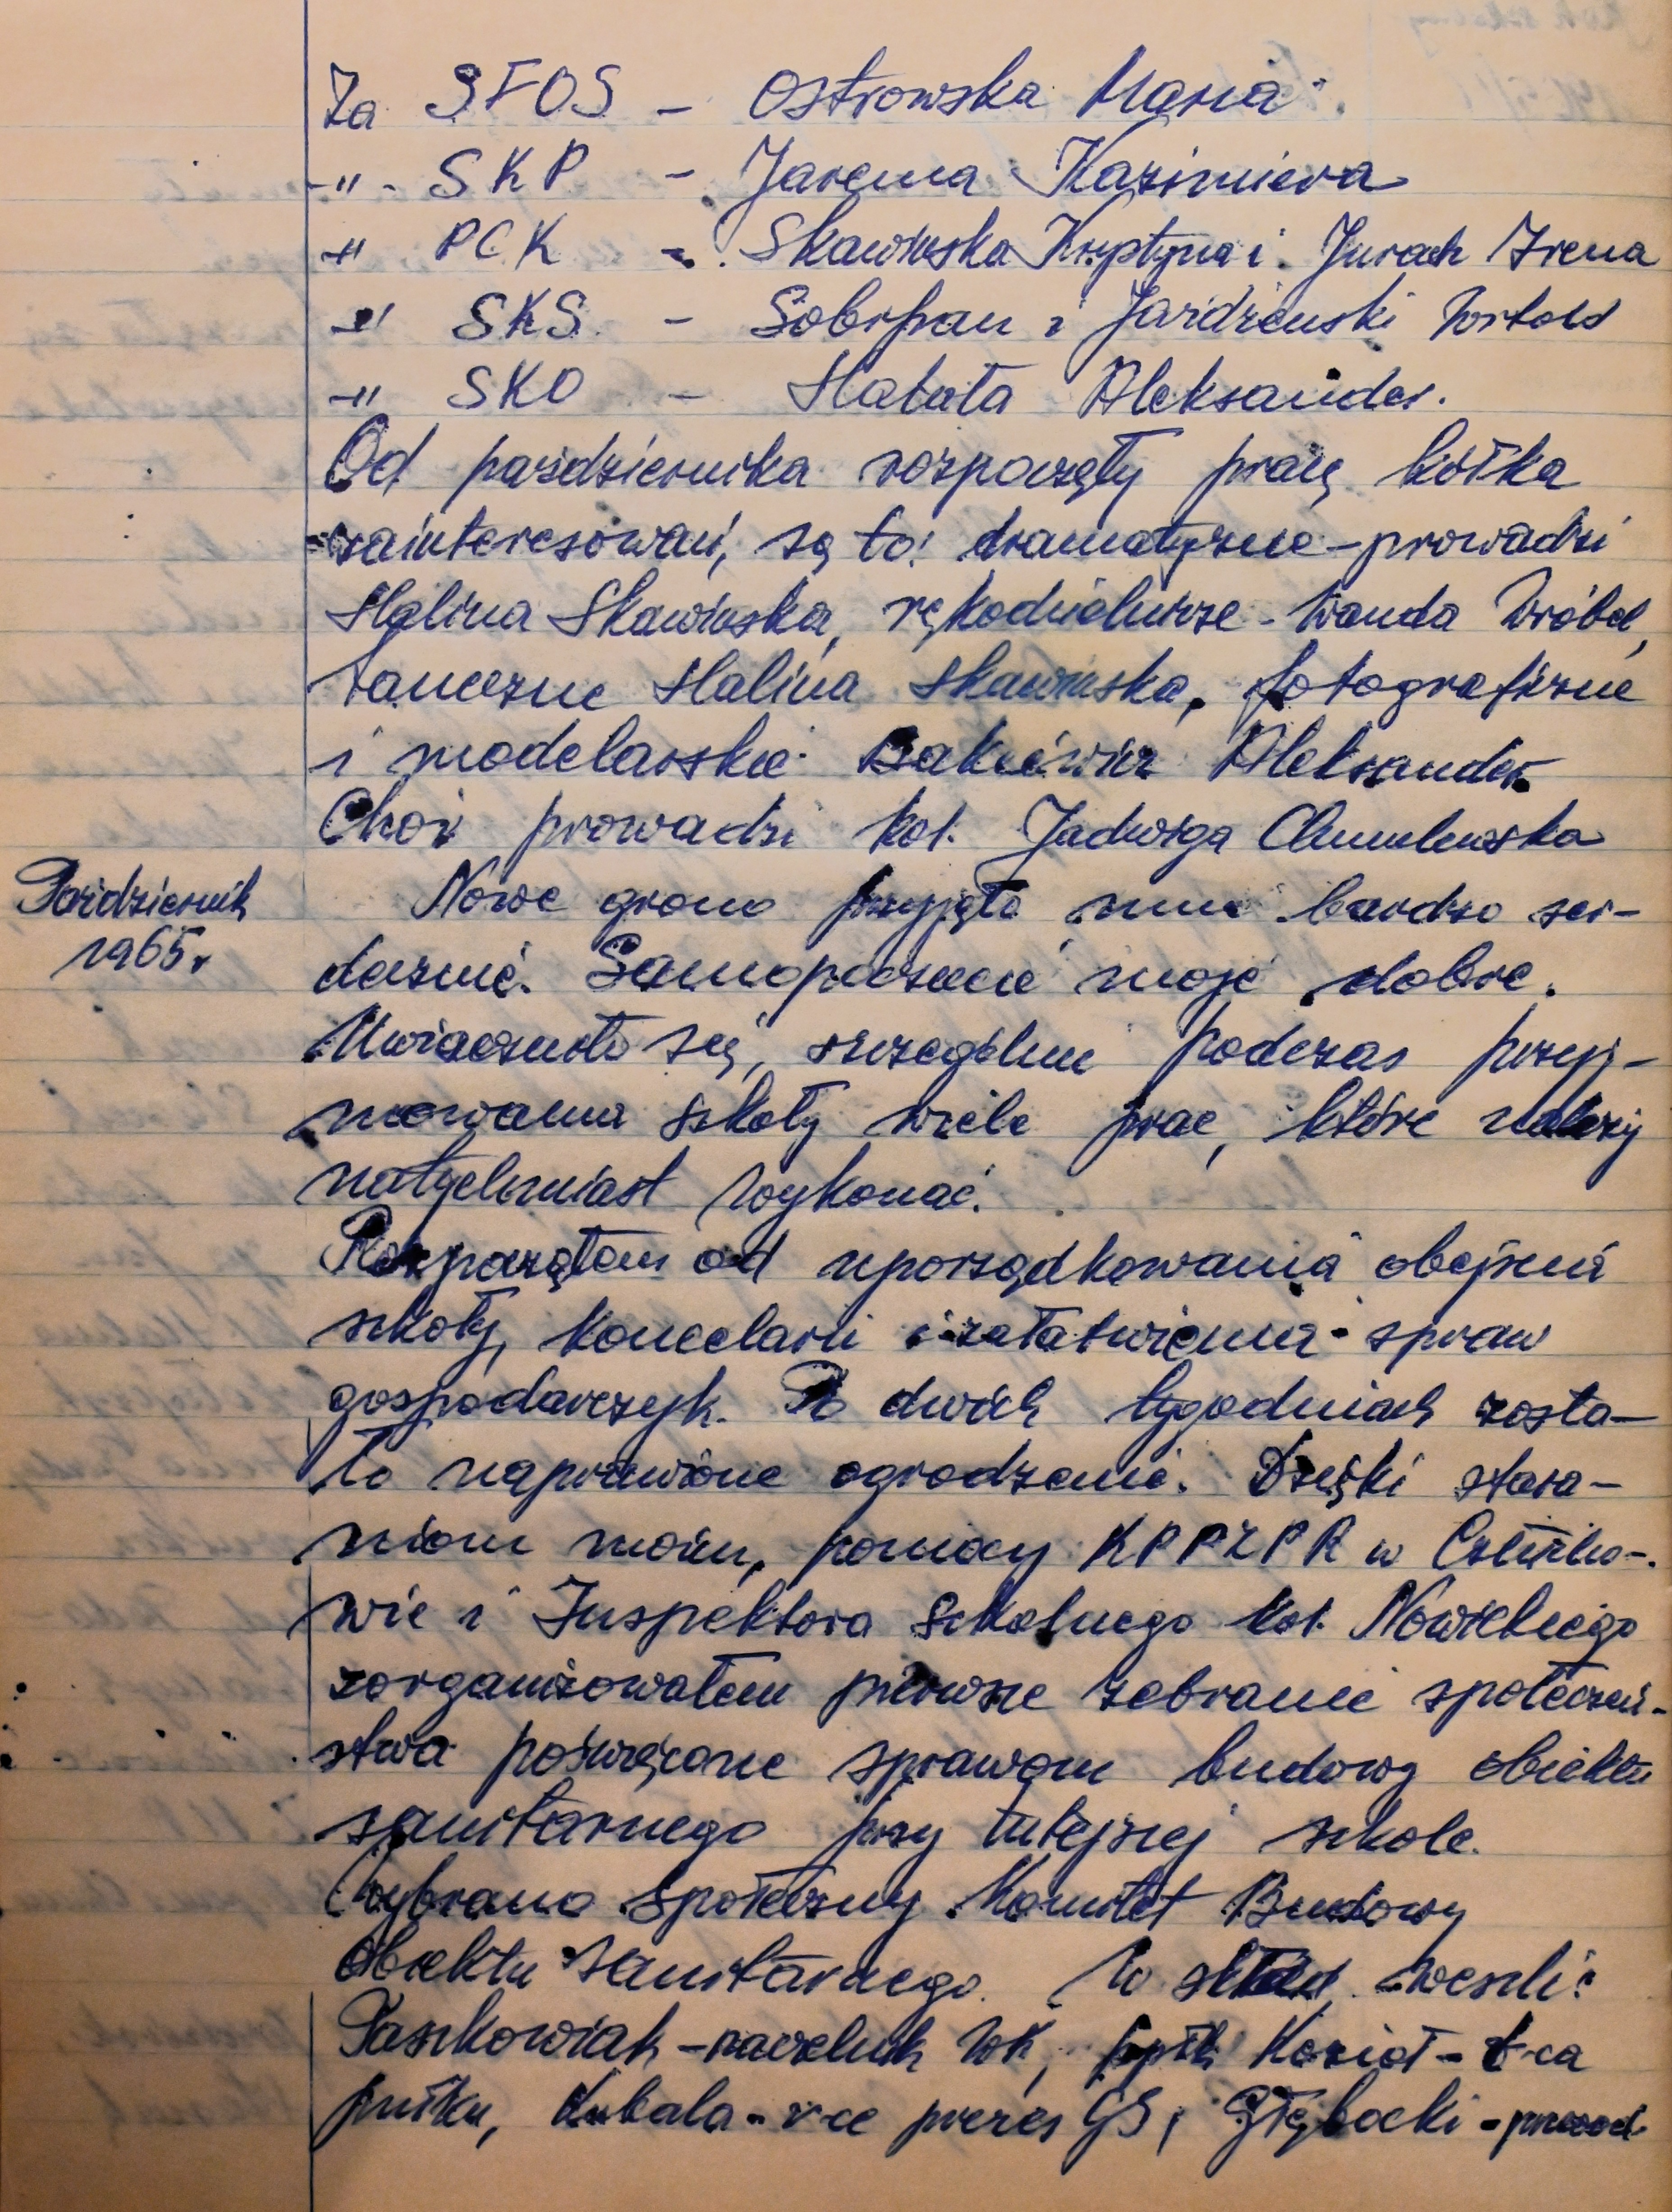 Za SFOS - Ostrowska Maria
-"- SKP - Jarema Kazimiera
-" PCK - Skawińska Krystyna i Jurach Irena
-" SKS - Sobrpan i Jaździewski Witold
-" SKO - Hałata Aleksander.
Od października rozpoczęły pracę kółka
zainteresowań, są to: dramatyczne - prowadzi
Halina Skawińska, rękodzielnicze - Wanda Wróbel,
taneczne Halina Skawińska, fotograficzne
i modelarskie Aleksander
Chór prowadzi kol. Jadwiga Chmulewska
Październik
1965r
Nowe grono przyjęło mnie bardzo ser-
decznie. Samopoczucie moje dobre.
Uwidoczniło się, szczególnie podczas przyj-
mowania szkoły wiele prac, które należy
natychmiast wykonać.
Rozpocząłem od uporządkowania obejścia
szkoły, kancelarii i załatwienia spraw
gospodarczych. Po dwóch tygodniach zosta-
ło naprawione ogrodzenie. Dzięki stara-
niom moim, pomocy KPPZPR w Człucho-
wie i Inspektora Szkolnego kol. Nowickiego
zorganizowałem pierwsze zebranie społeczeń-
stwa poświęcone sprawom budowy obiektu
sanitarnego przy tutejszej szkole.
Wybrano Społeczny Komitet Budowy
Obiektu Sanitarnego. W skład weszli:
Paszkowiak - naczelnik WK, ppłk Kozioł - z-ca
płku, Kubala - v-ce prezes GS, Głębocki - przewod.